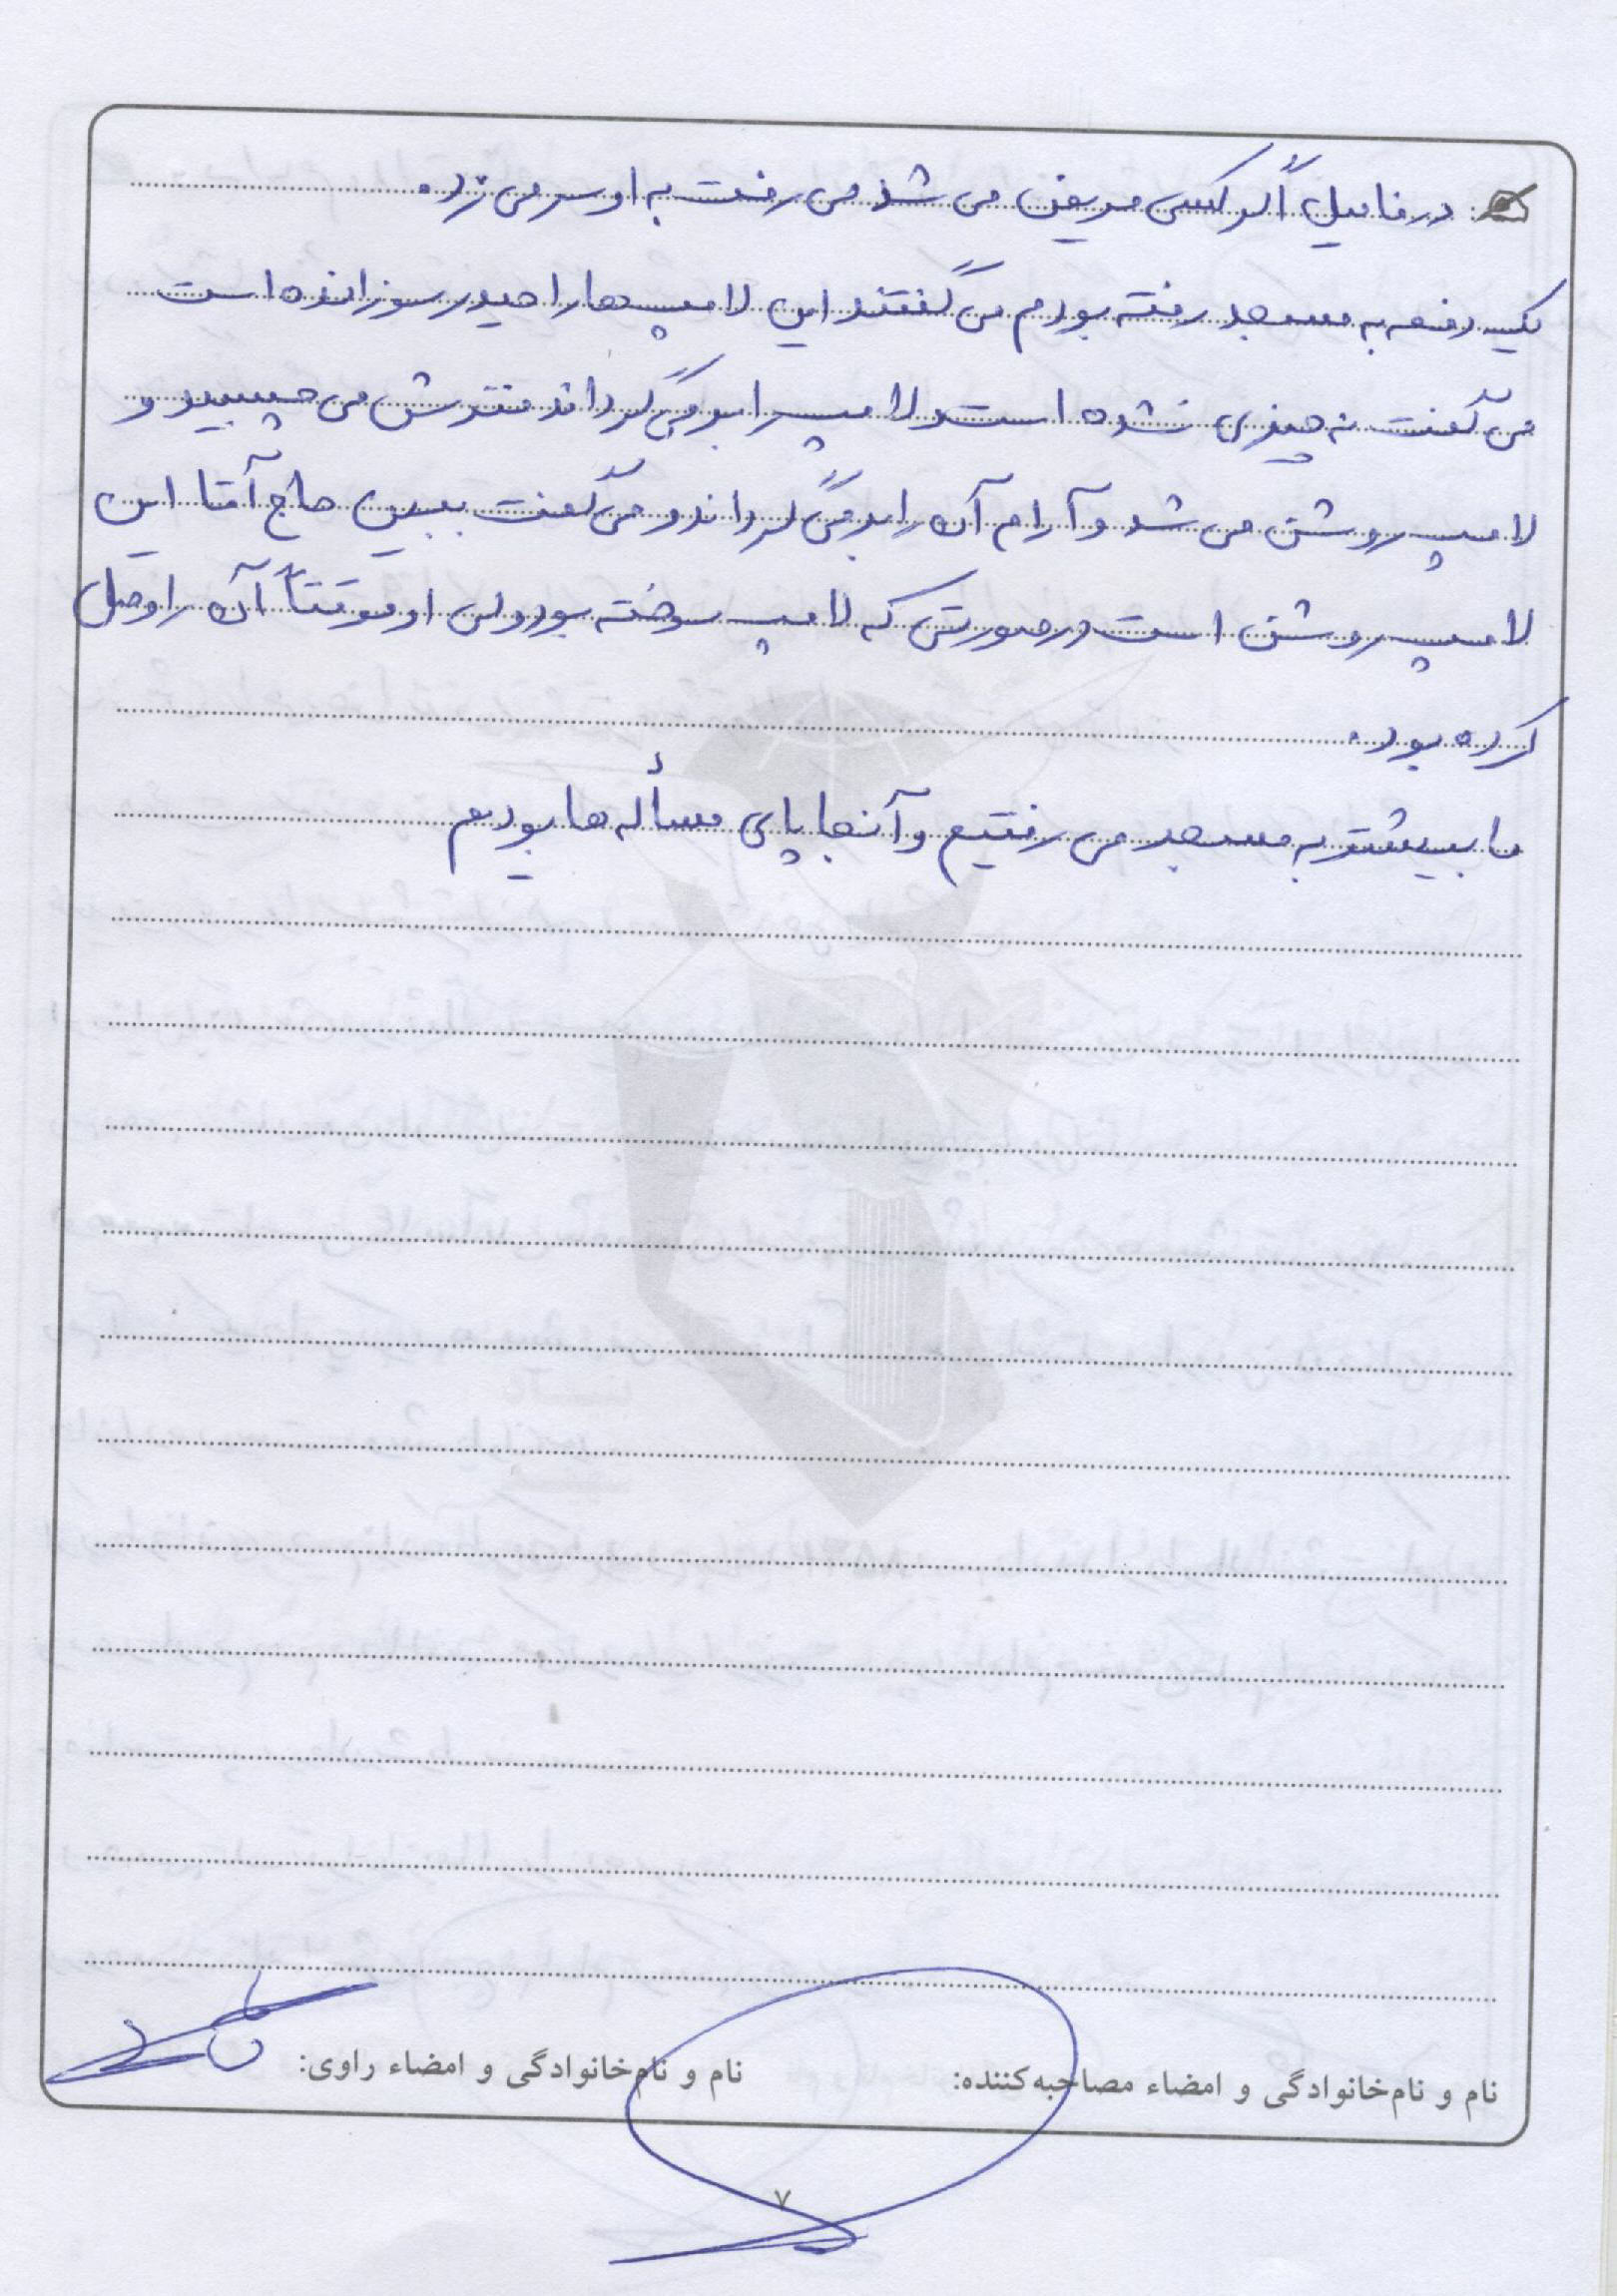 در فامیل اگر کسی مریض می شد می رفت به او سر می زد.
یک دفعه به مسجد رفته بودم می گفتند این لامپ ها را حیدر سوزانده است
می گفت نه چیزی نشده است و لامپ را بر می گرداند فنرش می چسبید و
لامپ روشن می شد و آرام آن را بر می گرداند و می گفت ببین حاج آقا این
لامپ روشن است در صورتی که لامپ سوخته بود ولی او موقتاً آن را وصل
کرده بود.
ما بیشتر به مسجد می رفتیم و آنجا پای مسأله ها بودیم
نام و نام‌خانوادگی و امضاء مصاحبه‌کننده:
نام و نام‌خانوادگی و امضاء راوی:
۷